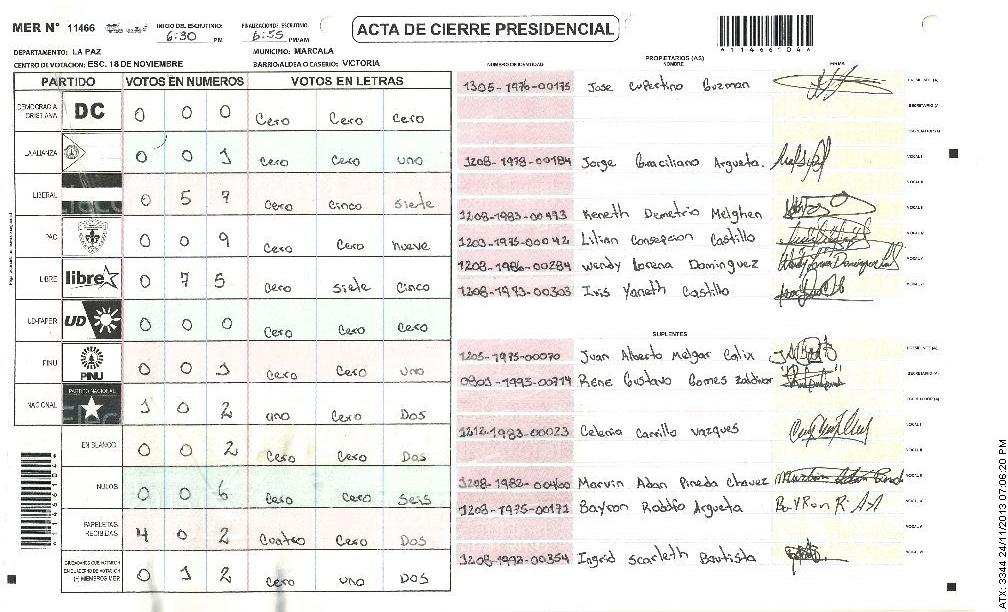 MER N° 11466
INICIO DEL ESCRUTINIO: 6:30 PM
FINALIZACION DEL ESCRUTINIO: 6:55 PM/AM
ACTA DE CIERRE PRESIDENCIAL
DEPARTAMENTO: LA PAZ
MUNICIPIO: MARCALA
CENTRO DE VOTACION: ESC. 18 DE NOVIEMBRE
BARRIO/ALDEA O CASERIO: VICTORIA
PARTIDO VOTOS EN NUMEROS VOTOS EN LETRAS
DEMOCRACIA CRISTIANA DC 0 0 0 Cero Cero Cero
LA ALIANZA 0 0 1 Cero Cero uno
LIBERAL 0 5 7 Cero Cinco Siete
PAC 0 0 9 Cero Cero nueve
LIBRE libre 0 7 5 Cero Siete Cinco
UD-FAPER UD 0 0 0 Cero Cero Cero
PINU PINU 0 0 1 Cero Cero uno
NACIONAL PARTIDO NACIONAL 1 0 2 uno Cero Dos
EN BLANCO 0 0 2 Cero Cero Dos
NULOS 0 0 6 Cero Cero Seis
PAPELETAS RECIBIDAS 4 0 2 Cuatro Cero Dos
CIUDADANOS QUE VOTARON EN CUADERNO DE VOTACION (+) MIEMBROS MER 0 1 2 Cero uno Dos
PROPIETARIOS (AS)
NUMERO DE IDENTIDAD NOMBRE FIRMA
1305-1976-00175 Jose Cupertino Guzman
1208-1978-00184 Jorge Graciliano Argueta.
1208-1983-00493 Keneth Demetrio Melghen
1203-1975-00042 Lilian Consepcion Castillo
1208-1986-00284 Wendy Lorena Dominguez
1208-1973-00303 Iris Yaneth Castillo
SUPLENTES
1205-1975-00070 Juan Alberto Melgar Calix
0801-1993-00714 Rene Gustavo Gomes Zaldivar
1212-1983-00023 Celenia Carrillo Vazques
1208-1982-00400 Marvin Adan Pineda Chavez
1208-1975-00171 Bayron Rodolfo Argueta BayRon R AA
1208-1992-00354 Ingrid Scarleth Bautista
ATX: 3344 24/11/2013 07:06:20 PM